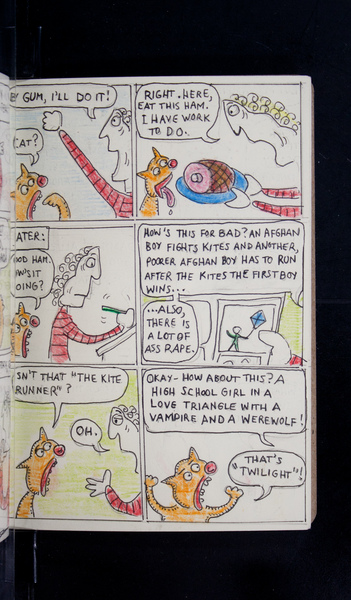 GUM, I'LL DO IT!
CAT?
RIGHT. HERE,
EAT THIS HAM.
I HAVE WORK
TO DO.
ATER:
OOD HAM.
OW'S IT
OING?
HOW'S THIS FOR BAD? AN AFGHAN
BOY FIGHTS KITES AND ANOTHER,
POORER AFGHAN BOY HAS TO RUN
AFTER THE KITES THE FIRST BOY
WINS...
...ALSO,
THERE IS
A LOT OF
ASS RAPE.
SN'T THAT "THE KITE
RUNNER"?
OH.
OKAY - HOW ABOUT THIS? A
HIGH SCHOOL GIRL IN A
LOVE TRIANGLE WITH A
VAMPIRE AND A WEREWOLF!
THAT'S
"TWILIGHT"!